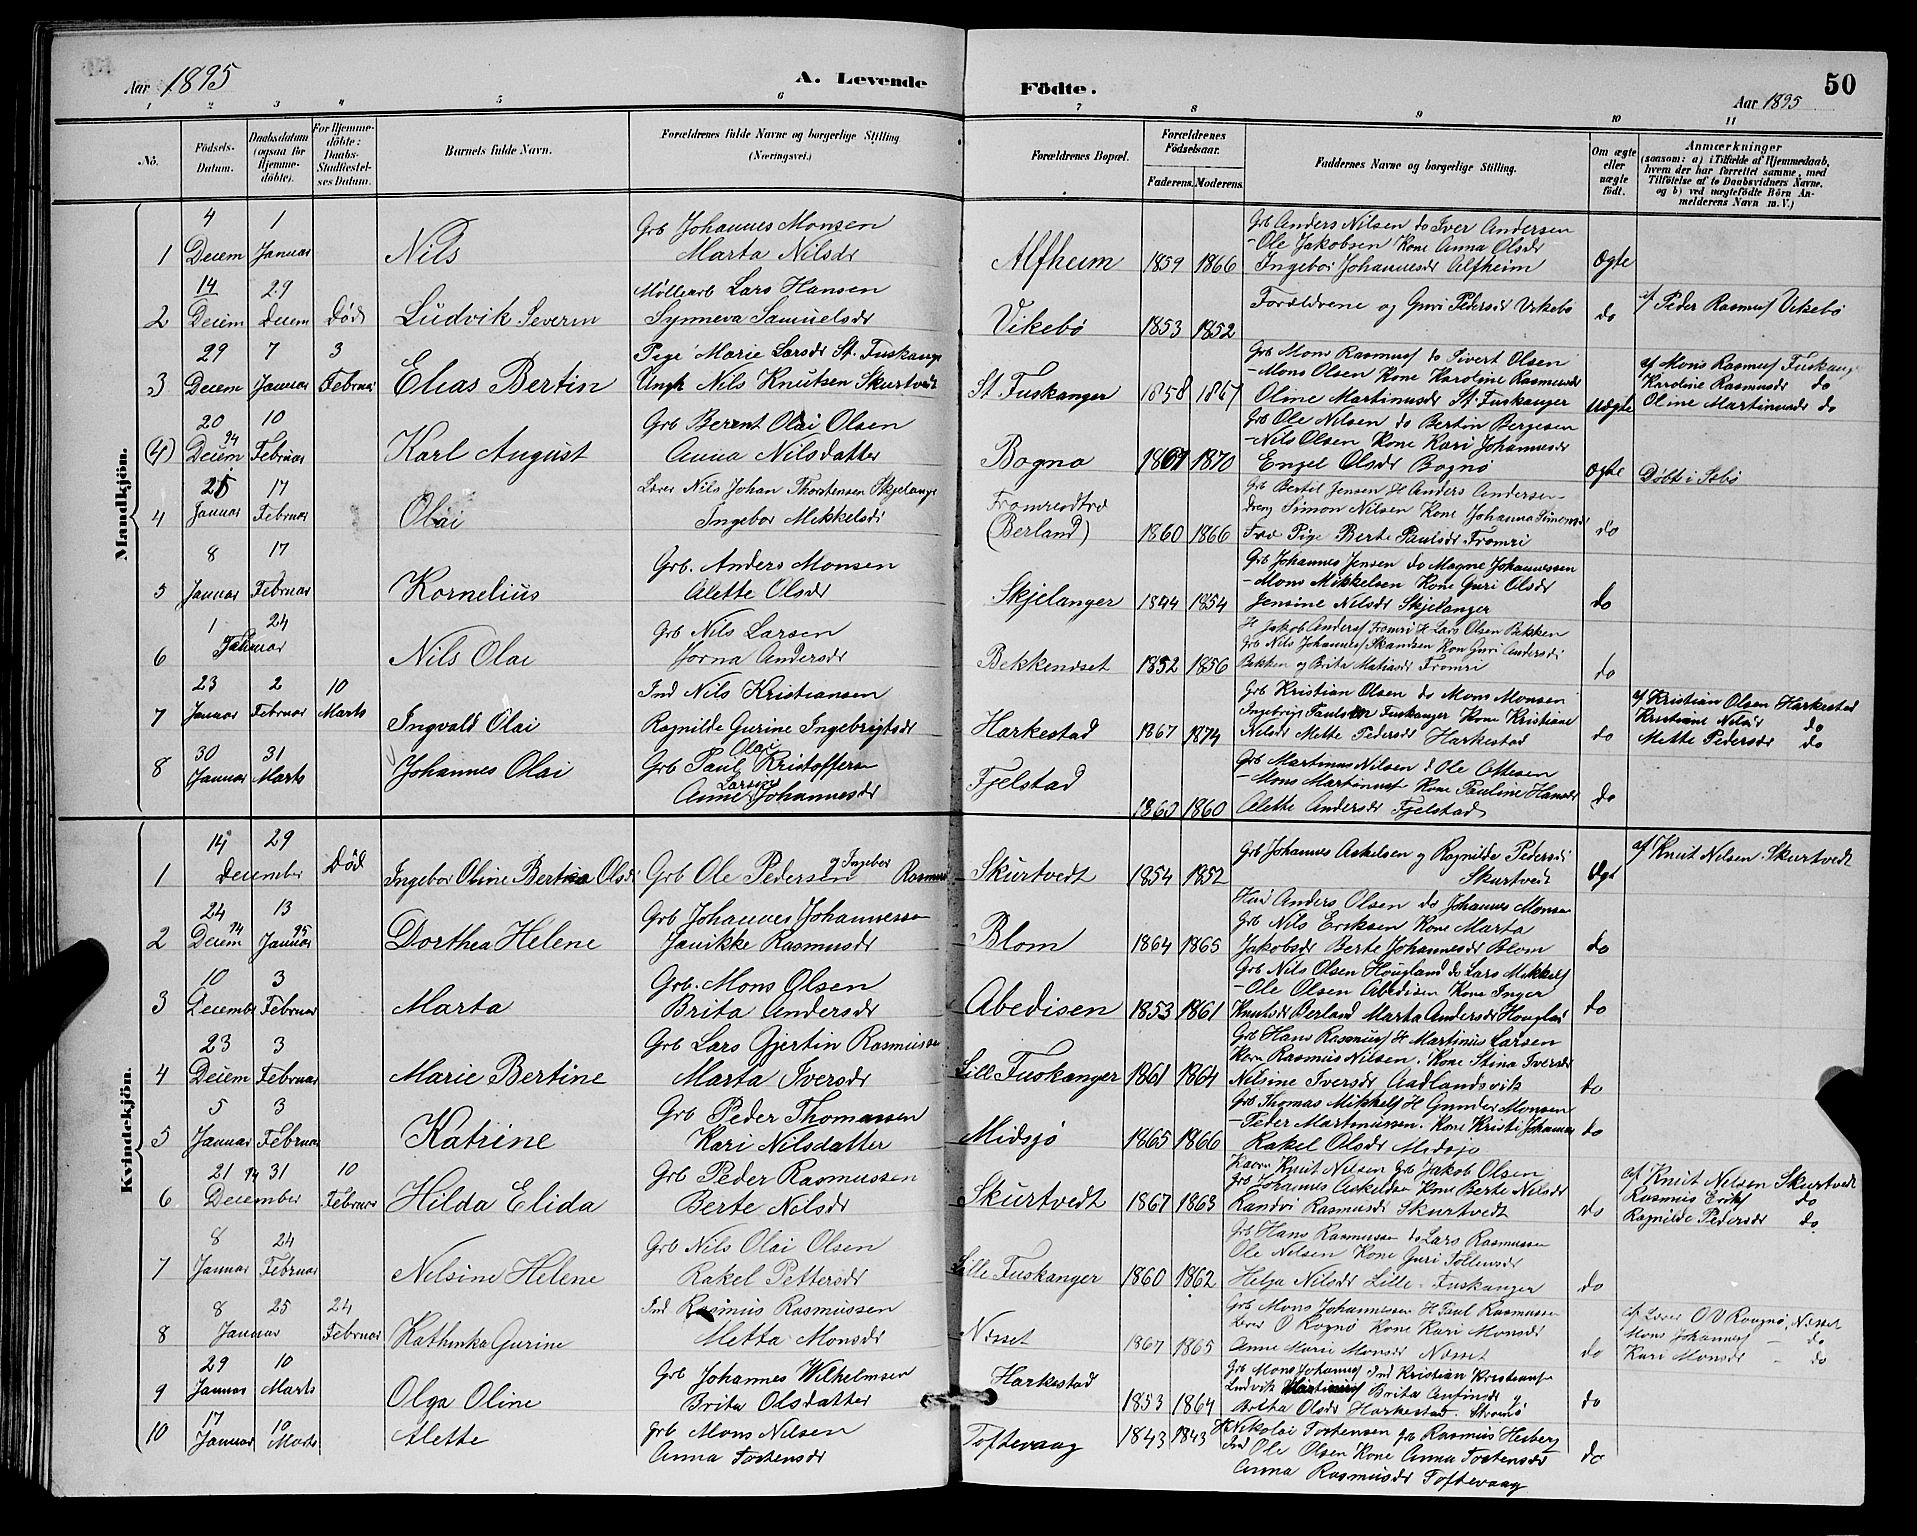 Aar 1895
A. Levende Födte.
Aar 1895
50
1 2 3 4 5 6 7 8 9 10 11
No.
Födsels-Datum.
Daabsdatum (ogsaa for Hjemme-döbte).
For Hjemme-döbte: Daabs-Stadfæstel-ses Datum.
Barnets fulde Navn.
Forældrenes fulde Navne og borgerlige Stilling (Næringsvei.)
Forældrenes Bopæl.
Forældrenes Födselsaar.
Faderens. Moderens.
Faddernes Navne og borgerlige Stilling.
Om ægte eller uægte födt.
Anmærkninger
(saasom: a) i Tilfælde af Hjemmedaab, hvem der har forrettet samme, med Tilföielse af to Daabsvidners Navne, og b) ved uægtefödte Börn An-melderens Navn m. V.)
Mandkjön.
4 1 Grb Johannes Monsen Grb Anders Nilsen do Iver Andersen
- Ole Jakobsen Kone Anna Olsdr
1 Decem Januar Nils Marta Nilsdr Alfheim 1859 1866 Ingebor Johannesdr Alfheim Ægte
14 29 Møllearb Lars Hansen Forældrene og Guri Pedersdr Vikebø af Peder Rasmus Vikebø
2 Decem Decem Død Ludvik Severin Synneva Samuelsdr Vikebø 1853 1852 do
29 7 3 Pige Marie Larsdr St. Fuskange Grb Mons Rasmus do Sivert Olsen af Mons Rasmus Fuskang
- Mons Olsen Kone Karoline Rasmusdr Karoline Rasmusdr do
3 Decem Januar Februar Elias Bertin Ungk Nils Knutsen Skurtvedt St. Fuskanger 1858 1867 Oline Martinusdr St. Fuskanger Uægte Oline Martinusdr do
20 10 Grb Berent Olai Olsen Grb Ole Nilsen do Bertin Bergesen
- Nils Olsen Kone Kari Johannesdr
(4) Decem 94 Februar Karl August Anna Nilsdatter Bogno 1867 1870 Engel Olsdr Bognø Ægte Døbt i Sæbø
25 17 Lærer Nils Johan Thorstensen Skjelange Grb Bertil Jensen H Anders Andersen
Fromreidtræ Dreng Simon Nilsen Kone Johanna Simonsdr
4 Januar Februar Olai Ingebor Mikkelsdr (Berland) 1860 1866 Pige Berte Paulsdr Fromri do
8 17 Grb. Anders Monsen Grb Johannes Jensen do Magne Johannessen
- Mons Mikkelsen Kone Guri Olsdr
5 Januar Februar Kornelius Alette Olsdr Skjelanger 1844 1854 Jensine Nilsdr Skjelanger do
1 24 Grb Nils Larsen H Jakob Anders Fromri H Lars Olsen Bekken
Grb Nils Johannes Skandsen Kon Guri Andersdr
6 Februar Nils Olai Jorna Andersdr Bekkeneset 1852 1856 Bekken og Brita Matiasdr Fromri do
23 2 10 Ind Nils Kristiansen Grb Kristian Olsen do Mons Monsen af Kristian Olsen Harkestad
Ingebrigt Fuskanger Kone Kristiane Kristiane Nilsdr do
7 Januar Februar Marts Ingvald Olai Ragnilde Gurine Ingebrigtsdr Harkestad 1867 1874 Nilsdr Mette Pedersdr Harkestad do Mette Pedersdr do
30 31 Grb Paul Olai Kristoffersen Grb Martinus Nilsen d Ole Ottesen
- Mons Martinus Kone Pauline Hansdr
8 Januar Marts Johannes Olai Anne Larsine Johannesdr Fjelstad 1860 1860 Alette Andersdr Fjelstad do
Kvindekjön.
14 29 Grb Johannes Askelsen og Ragnilde Pedersdr af Knut Nilsen Skurtvedt
1 December Død Ingebor Oline Bertha Olsdr Grb Ole Pedersen og Ingebor Rasmusd Skurtvedt 1854 1852 Skurtvedt Ægt
24 13 Grb Johannes Johannessen Anders Olsen do Johannes Monsen
Grb Nils Eriksen Kone Marta
2 Decem 94 Januar 95 Dorthea Helene Janikke Rasmusdr Blom 1864 1865 Jakobsdr Berte Johannesdr Blom do
10 3 Grb. Mons Olsen Grb Nils Olsen Hougland do Lars Mikkels
- Ole Olsen Abedisen Kone Inger
3 December Februar Marta Brita Andersdr Abedisen 1853 1861 Knutsdr Berland Marta Andersdr Hougland do
23 3 Grb Lars Gjertin Rasmusse Grb Hans Rasmus H Martinus Larsen
Rasmus Nilsen. Kone Stina Iversdr
4 Decem Februar Marie Bertine Marta Iversdr Lille Fuskanger 1861 1864 Nilsine Iversdr Aadlandsvik do
5 3 Grb Peder Thomassen Grb Thomas Mikkels H Gunder Monsen
- Peder Martinussen. Kone Kristi Johannes
5 Januar Februar Katrine Kari Nilsdatter Midsjø 1865 1866 Rakel Olsdr Midsjø do
21 94 31 10 Grb Peder Rasmussen Knut Nilsen Grb Jakob Olsen af Knut Nilsen Skurtvedt
Grb Johannes Askelsen Kone Berte Nilsdr Rasmus Eriks do
6 December Februar Hilda Elida Berte Nilsdr Skurtvedt 1867 1863 Randvi Rasmusdr Skurtvedt do Ragnilde Pedersdr do
8 24 Grb Nils Olai Olsen Grb Hans Rasmussen do Lars Rasmussen
Ole Nilsen Kone Guri Tollensdr
7 Januar Februar Nilsine Helene Rakel Pettersdr Lille Fuskanger 1860 1862 Helga Nilsdr Lille-Fuskanger do
8 25 24 Ind Rasmus Rasmussen Grb Mons Johannessen H Paul Rasmussen af Lærer O O Rongnø, Nesset
Lærer O Rognø Kone Kari Monsdr Mons Johannes - do
8 Januar Februar Kathinka Gurine Metta Monsdr Nesset 1867 1865 Anne Marie Monsdr Nesset do Kari Monsdr - do
29 10 Grb Johannes Wilhelmsen Grb Mons Johannes Ind Kristian Kristians
Ludvik Brita Anfinsdr
9 Januar Marts Olga Oline Brita Olsdatter Harkestad 1853 1864 Bertha Olsdr Harkestad. Strømø do
17 10 Grb Mons Nilsen H Nikolai Tostensen grb Rasmus Hesberg
10 Januar Marts Alette Anna Tostensdr Toftevaag 1843 1843 Ind Ole Olsen Kone Anna Tostensdr do
Anna Rasmusdr Toftevaag